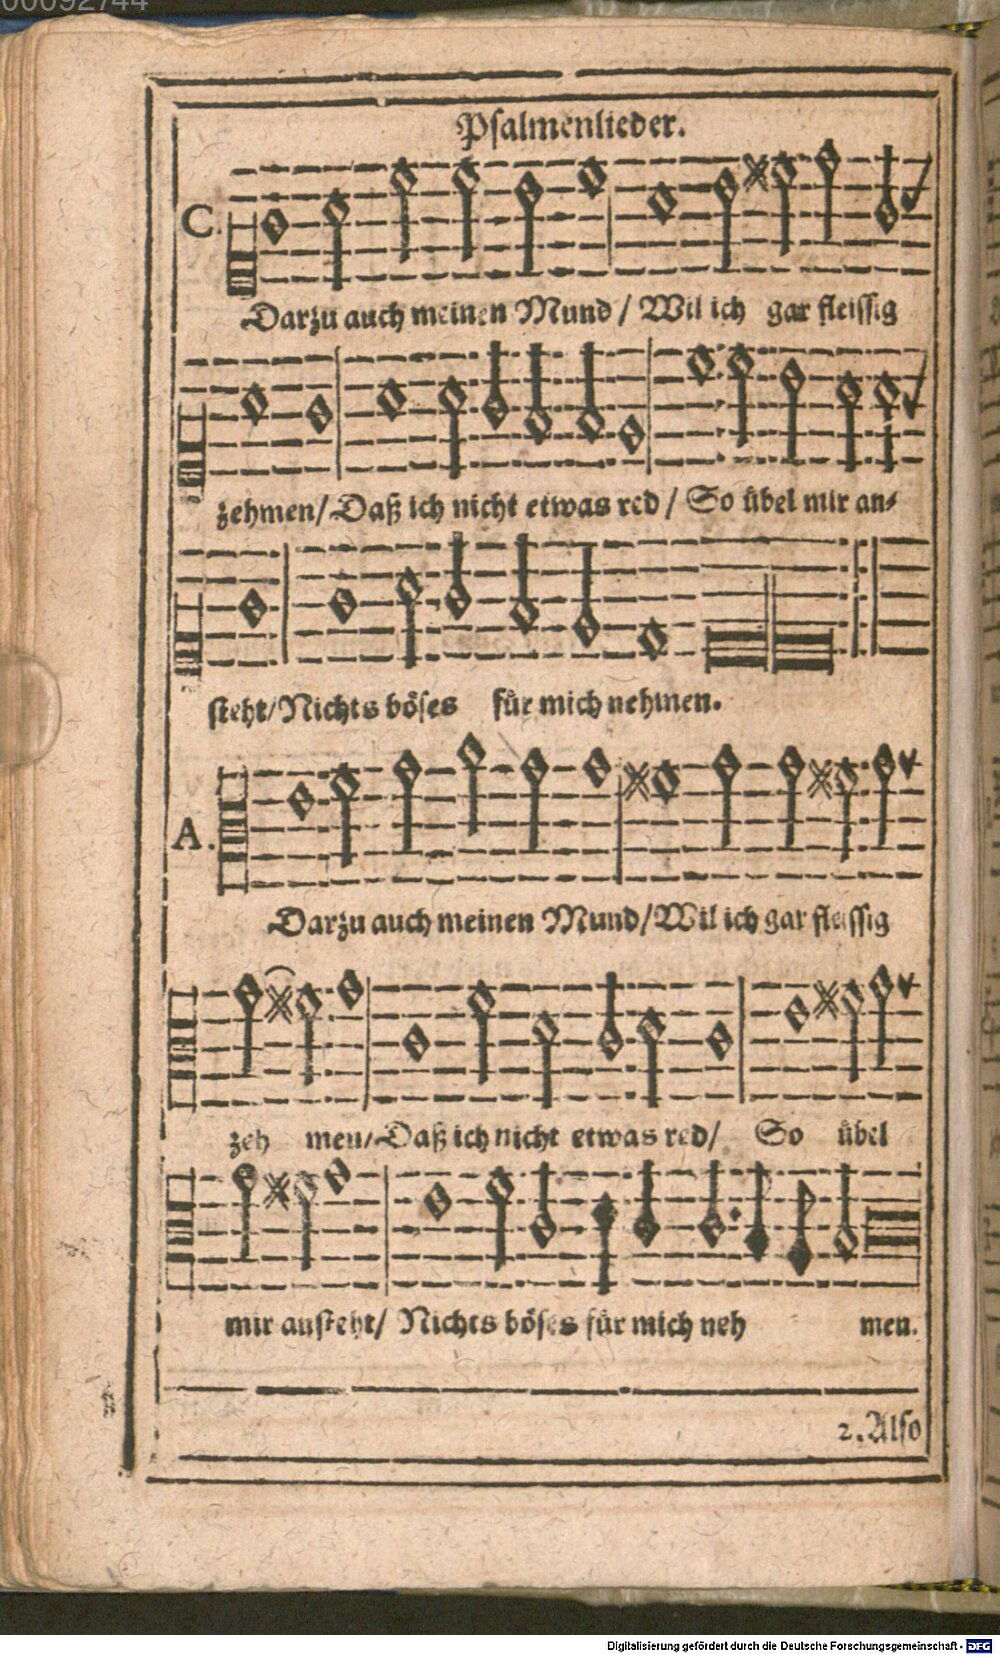 00092744
Psalmenlieder.
C.
Darzu auch meinen Mund / Wil ich gar fleissig
zehmen / Daß ich nicht etwas red / So übel mir an-
steht / Nichts böses für mich nehmen.
A.
Darzu auch meinen Mund / Wil ich gar fleissig
zeh men / Daß ich nicht etwas red / So übel
mir ansteht / Nichts böses für mich neh men.
2. Also
Digitalisierung gefördert durch die Deutsche Forschungsgemeinschaft - DFG